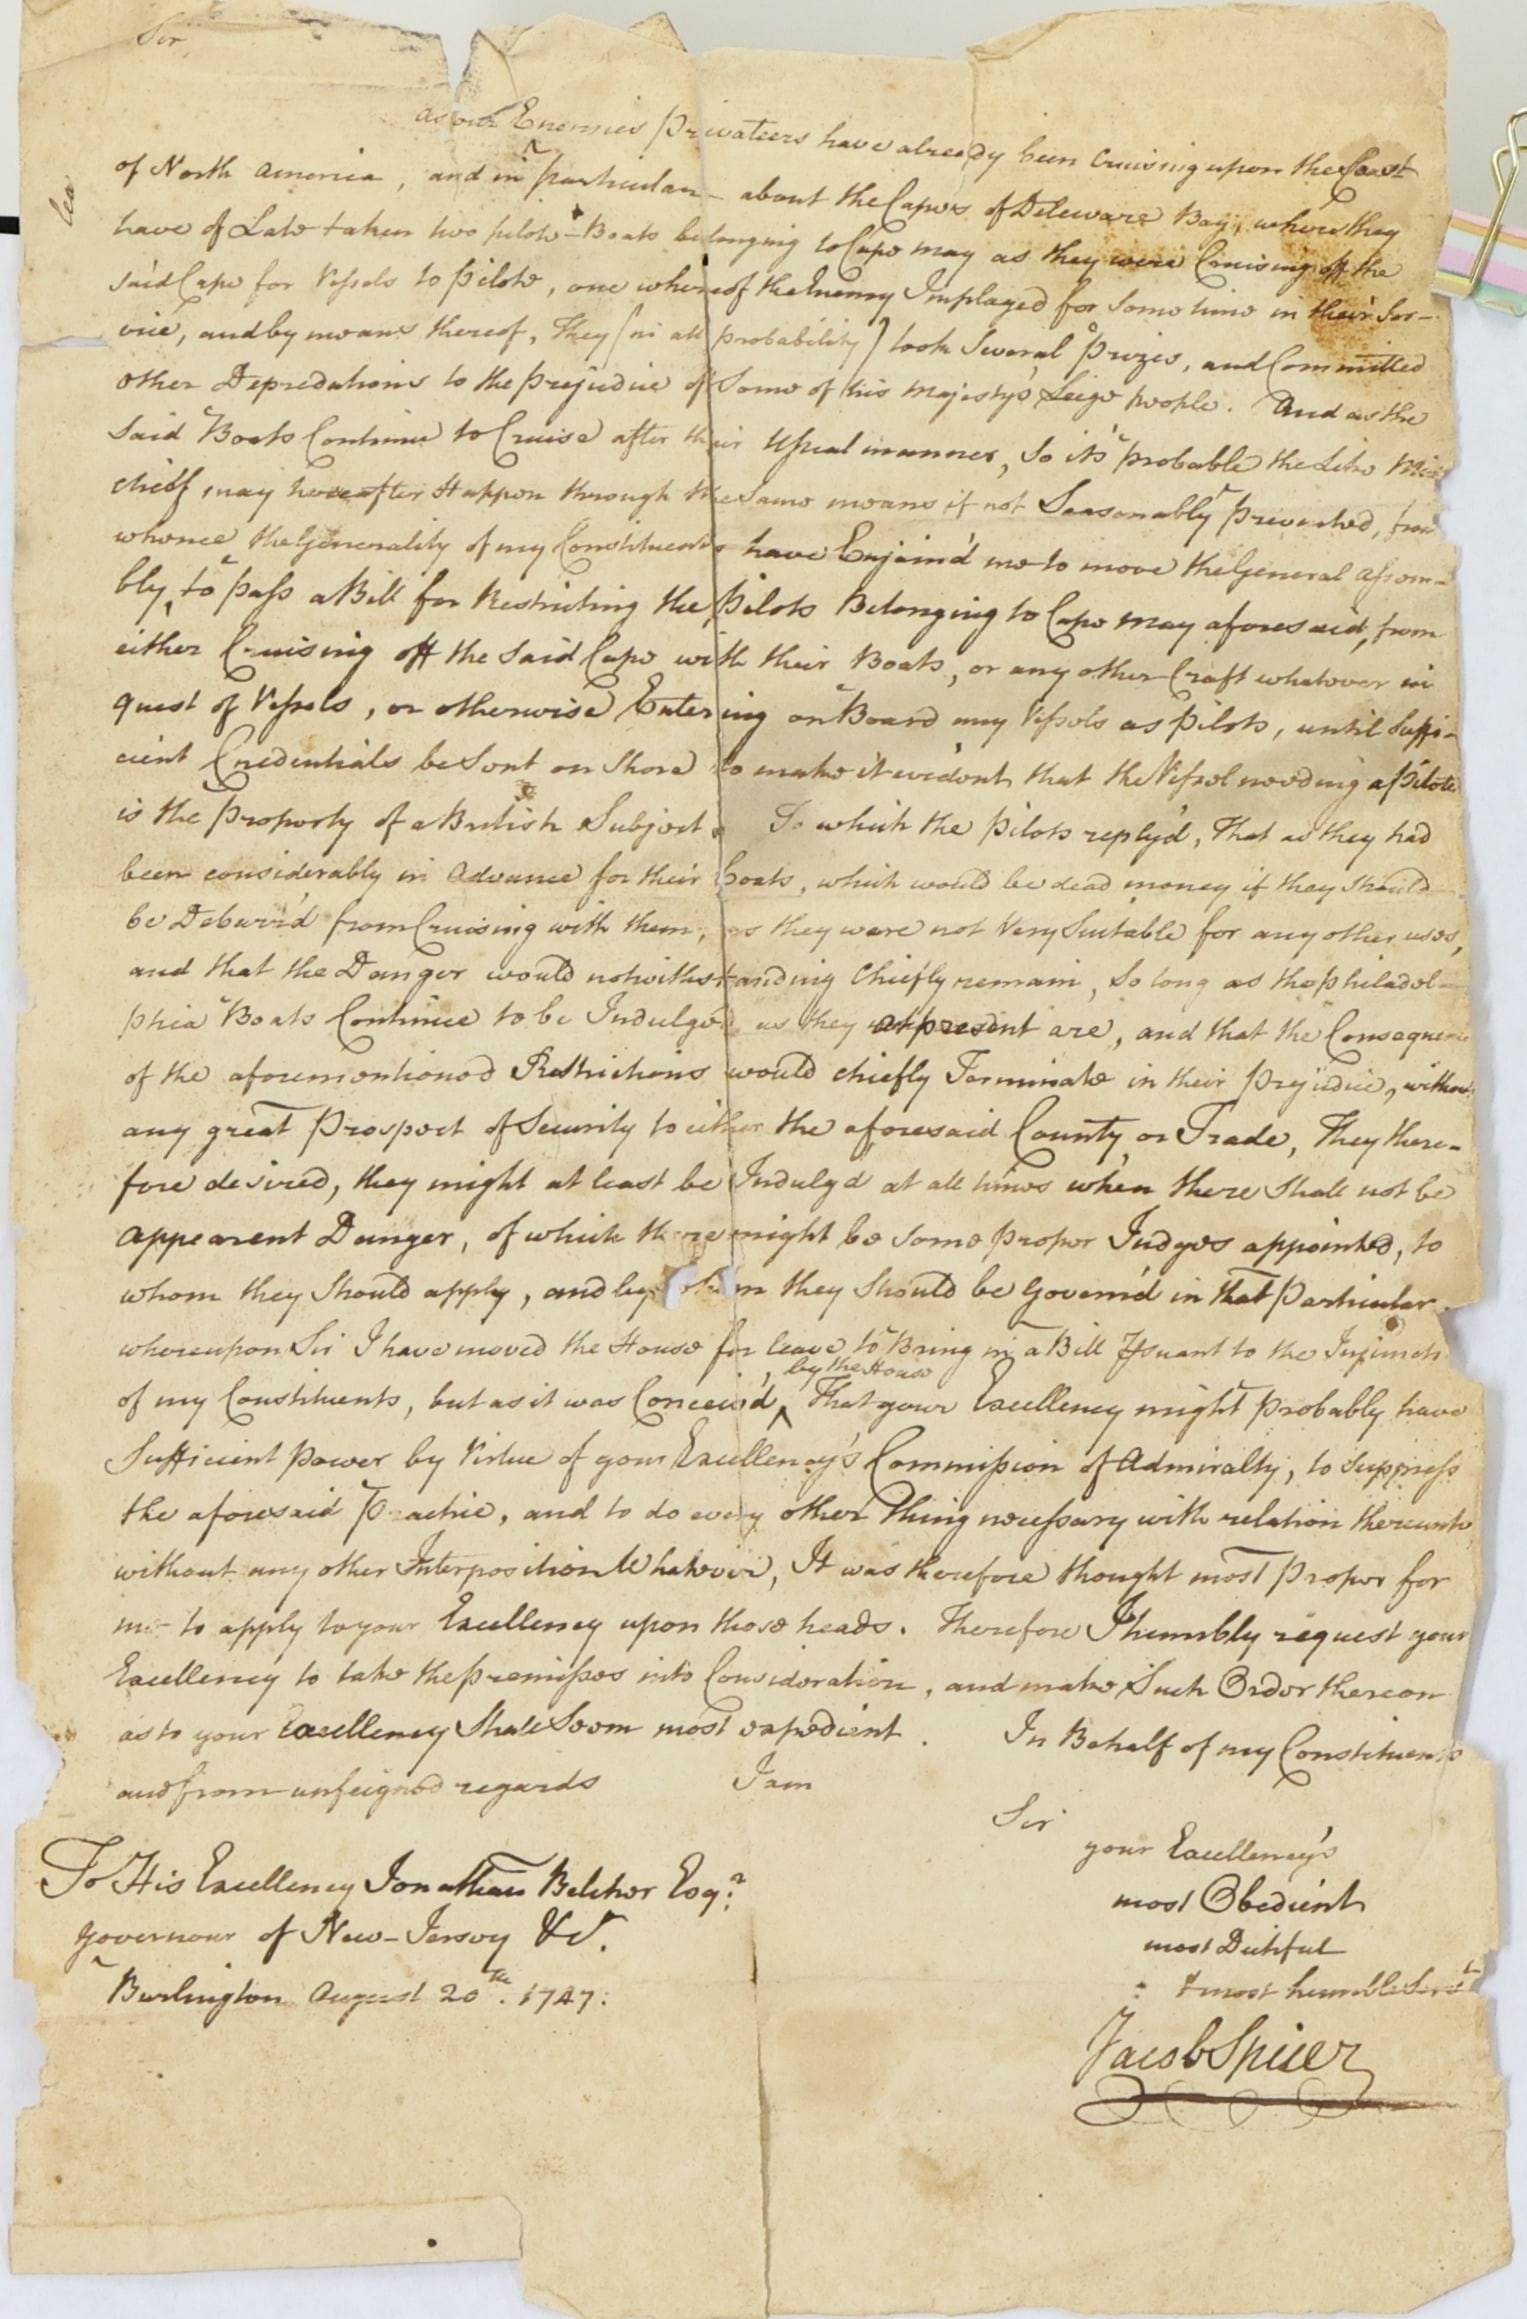 Sir,
as our Enemies Privateers have already been Cruising upon the Coast
of North America, and in particular about the Capes of Deleware Bay, where they
have of Late taken two pilote-Boats belonging to Cape may as they were Cruising off the
said Cape for Vessels to pilote, one whereof the Enemy Imployed for some time in their Ser-
vice, and by means thereof, They (in all probability) took Several Prizes, and Committed
other Depredations to the prejudice of Some of his Majesty's Leige people. And as the
said Boats Continue to Cruise after their Usual manner, So its probable the Like Mis
chief may hereafter Happen through the Same means if not Seasonably prevented, from
whence the Generality of my Constituents have Enjoin'd me to move the General Assem-
bly, to pass a Bill for Restricting the Pilots Belonging to Cape may aforesaid, from
either Cruising off the Said Cape with their Boats, or any other Craft whatever in
quest of Vessels, or otherwise Entering on Board any Vessels as Pilots, until Suffi-
cient Credentials be Sent on Shore to make it evident that the Vessel needing a Pilote
is the Property of a British Subject. To which the Pilots reply'd, That as they had
been considerably in Advance for their Boats, which would be dead money if they should
be Debarr'd from Cruising with them, as they were not Very Suitable for any other uses,
and that the Danger would notwithstanding Chiefly remain, So long as the Philadel-
phia Boats Continue to be Indulged as they at present are, and that the Consequence
of the aforementioned Restrictions would chiefly Terminate in their Prejudice, without
any great Prospect of Security to either the aforesaid County, or Trade, They there-
fore desired, they might at least be Indulg'd at all times when there shall not be
appearent Danger, of which there might be some proper Judges appointed, to
whom they Should apply, and by whom they Should be Govern'd in that Particular
whereupon Sir I have moved the House for leave to Bring in a Bill Issuant to the Injuncti
of my Constituents, but as it was Conceiv'd, by the House That your Excellency might probably have
Sufficient Power by Virtue of your Excellency's Commission of Admiralty, to Suppress
the aforesaid Practice, and to do every other Thing necessary with relation thereunto
without any other Interposition Whatever, It was therefore thought most Proper for
me to apply to your Excellency upon those heads. Therefore I humbly request your
Excellency to take the premisses into Consideration, and make Such Order thereon
as to your Excellency Shall Seem most expedient. In Behalf of my Constituents
and from unfeigned regards I am
Sir
your Excellency's
most Obedient
most Dutiful
& most humble Servt
Jacob Spicer
To His Excellency Jonathan Belcher Esqr.
Governour of New-Jersey &c.
Burlington August 20th. 1747: